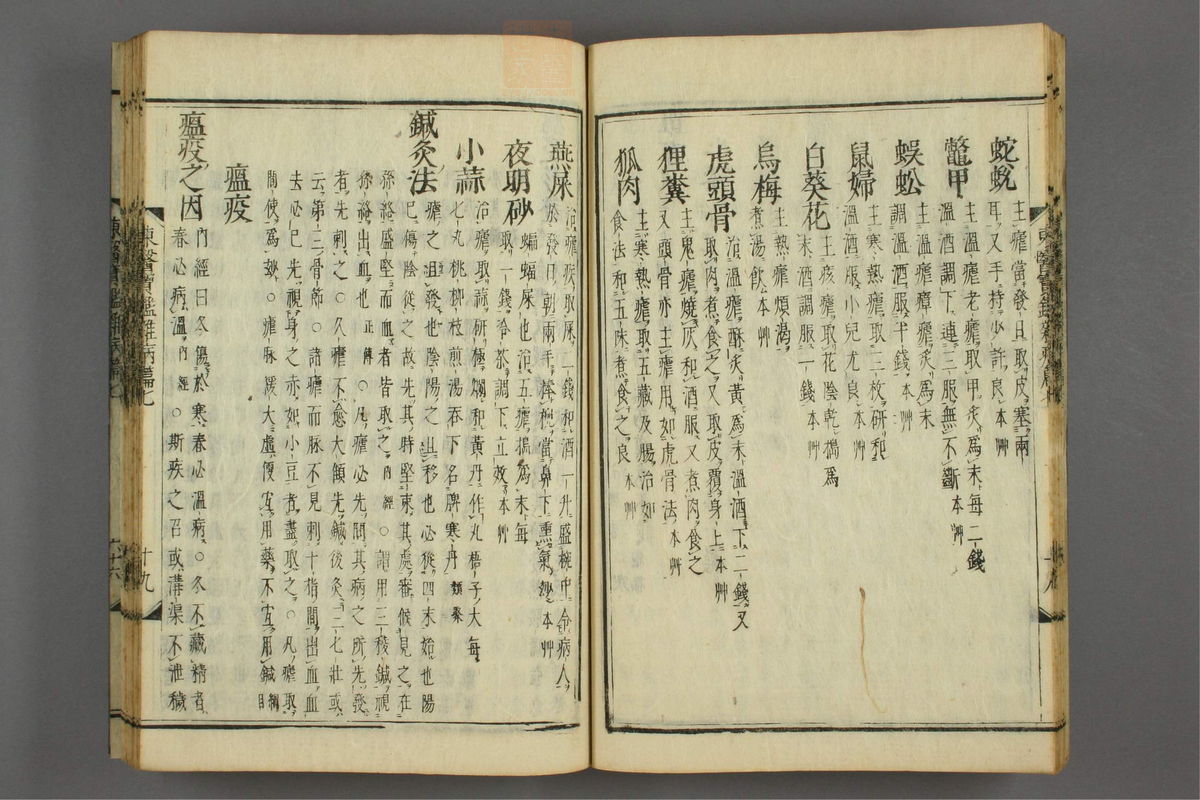 蛇蛻 主瘧當發日取皮塞兩
耳又手持少許良本艸
鼈甲 主溫瘧老瘧取甲炙爲末每二錢
溫酒調下連三服無不斷本艸
蜈蚣 主溫瘧瘴瘧炙爲末
調溫酒服半錢本艸
鼠婦 主寒熱瘧取二枚研和
溫酒服小兒尤良本艸
白葵花 主痎瘧取花陰乾搗爲
末酒調服一錢本艸
烏梅 主熱瘧煩渴
煮湯飮本艸
虎頭骨 治溫瘧酥炙黃爲末溫酒下二錢又
取肉煮食之又取皮覆身上本艸
狸糞 主鬼瘧燒灰和酒服又煮肉食之
又頭骨亦主瘧用如虎骨法本艸
狐肉 主寒熱瘧取五藏及腸治如
食法和五味煮食之良本艸
燕屎 治瘧疾取屎二錢和酒一升盛椀中令病人
於發日朝兩手捧椀當鼻下熏氣妙本艸
夜明砂 蝙蝠屎也治五瘧搗爲末每
取一錢冷茶調下立效本艸
小蒜 治瘧取蒜研極爛和黃丹作丸梧子大每
七丸桃柳枝煎湯吞下名脾寒丹類聚
鍼灸法 瘧之且發也陰陽之且移也必從四末始也陽
已傷陰從之故先其時堅束其處審候見之在
孫絡盛堅而血者皆取之內經○謂用三稜鍼視
孫絡出血也正傳○凡瘧必先問其病之所先發
者先刺之○久瘧不愈大顀先鍼後灸三七壯或
云第三骨節○諸瘧而脉不見刺十指間出血血
去必已先視身之赤如小豆者盡取之○凡瘧取
間使爲妙○瘧脉緩大虛便宜用藥不宜用鍼綱目
瘟疫
瘟疫之因 內經曰冬傷於寒春必溫病○冬不藏精者
春必病溫內經○斯疾之召或溝渠不泄穢
東醫寶鑑雜病篇七
十九